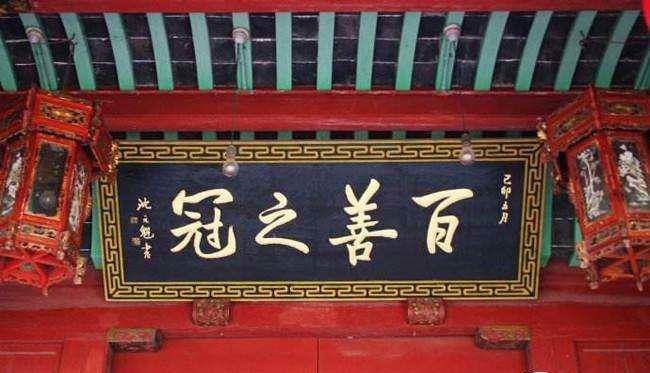 己卯五月
百善之冠
沈之魁书